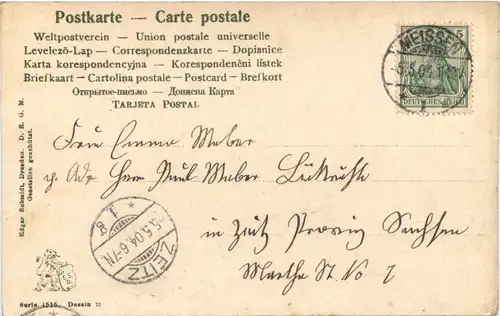 Postkarte — Carte postale
Weltpostverein — Union postale universelle
Levelező-Lap — Correspondenzkarte — Dopisnice
Karta korespondencyjna — Korespondenční lístek
Briefkaart — Cartolina postale — Postcard — Brefkort
Открытое-письмо — Дописна Карта
TARJETA POSTAL
MEISSEN
-5.5.04
5
DEUTSCHES REICH
Edgar Schmidt, Dresden. D. R. G. M.
Gesetzlich geschützt.
Frau Emma Weber
p. Adr. Herr Paul Weber
in Zeitz Provinz Sachsen
Marthe St. No 7
ZEITZ
-5.5.04. 6-7N.
* 1 g
Serie 1515. Dessin